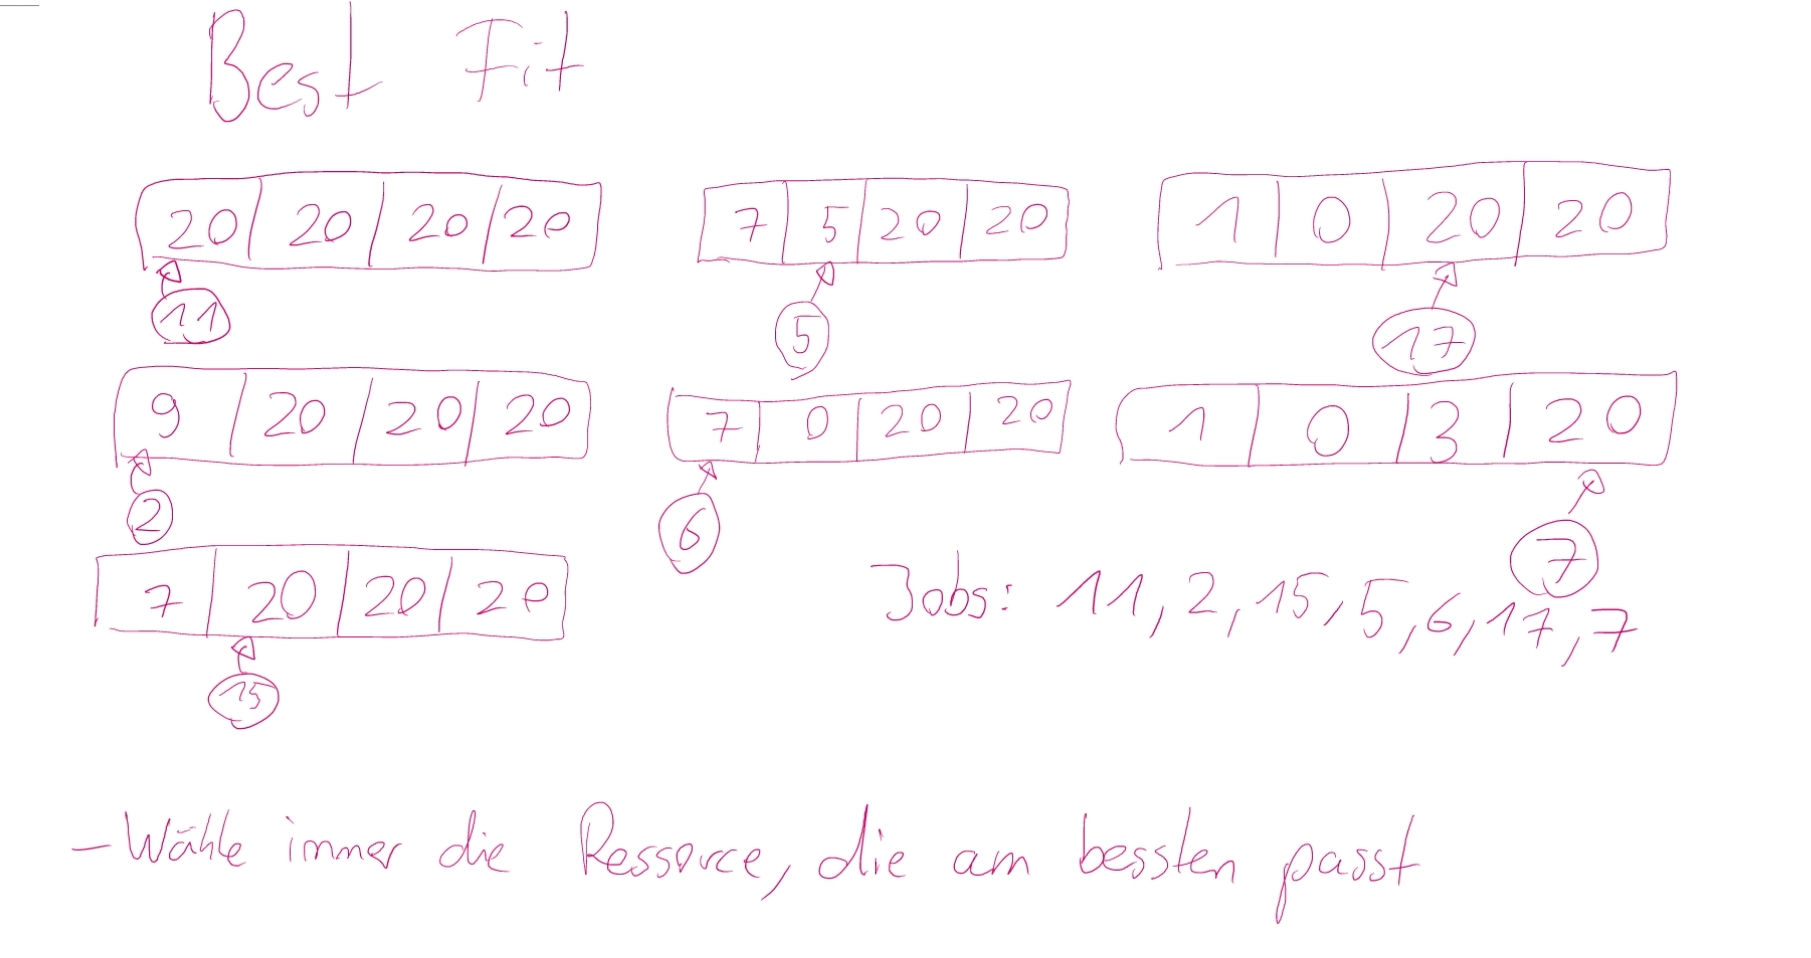 Best Fit
20 20 20 20
11
9 20 20 20
2
7 20 20 20
15
7 5 20 20
5
7 0 20 20
6
1 0 20 20
17
1 0 3 20
7
Jobs: 11, 2, 15, 5, 6, 17, 7
- Wähle immer die Ressource, die am bessten passt